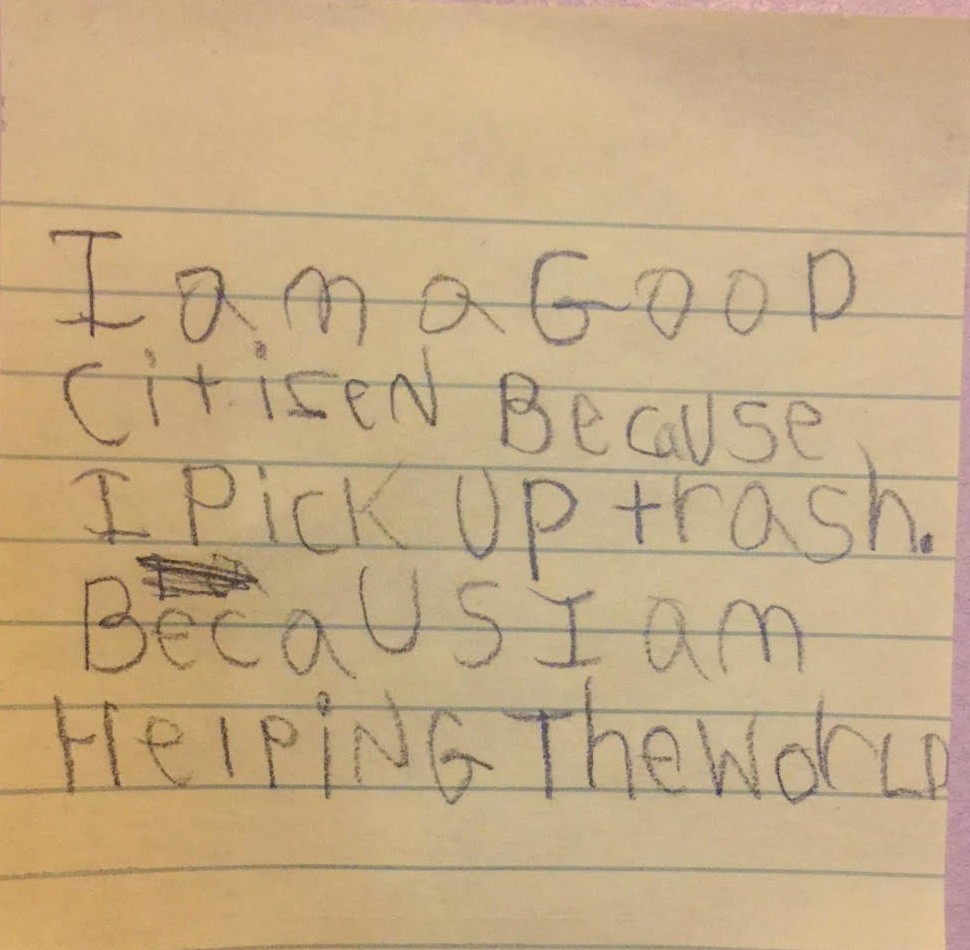 I am a GooD
CitiseN Because
I Pick Up trash.
BecaUS I am
HelPiNG The WorLD